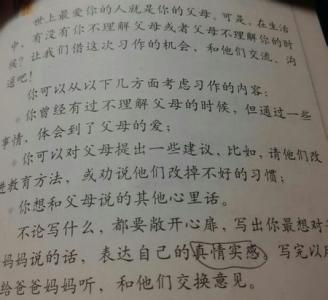 世上最爱你的人就是你的父母。可是，在生活
中，有没有你不理解父母或者父母不理解你的时
候？让我们借这次习作的机会，和他们交流、沟
通吧！
你可以从以下几方面考虑习作的内容：
你曾经有过不理解父母的时候，但通过一些
事情，体会到了父母的爱；
你可以对父母提出一些建议，比如，请他们改
进教育方法，或劝说他们改掉不好的习惯；
你想和父母说的其他心里话。
不论写什么，都要敞开心扉，写出你最想对
妈妈说的话，表达自己的真情实感。写完以
给爸爸妈妈听，和他们交换意见。